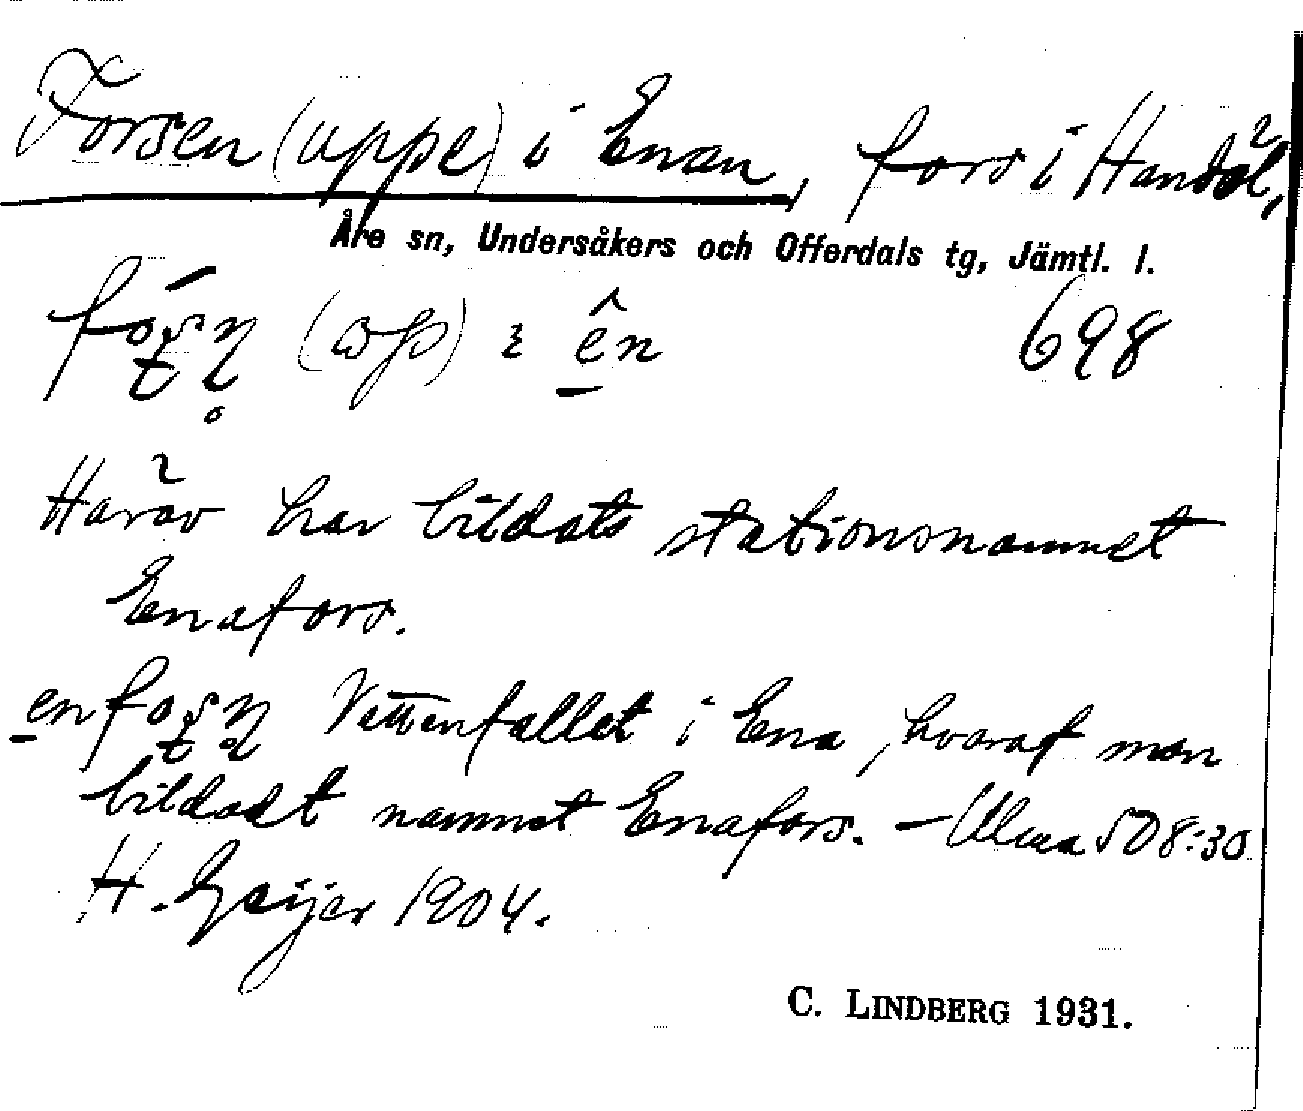 Forsen (uppe) i Enan, fors i Handöl,
Åre sn, Undersåkers och Offerdals tg, Jämtl. l.
698
Härav har bildats stationsnamnet
Enafors.
Vattenfallet i Ena, hvaraf man
bildadt namnet Enafors. – Ulma 508:30
H. Geijer 1904.
C. LINDBERG 1931.